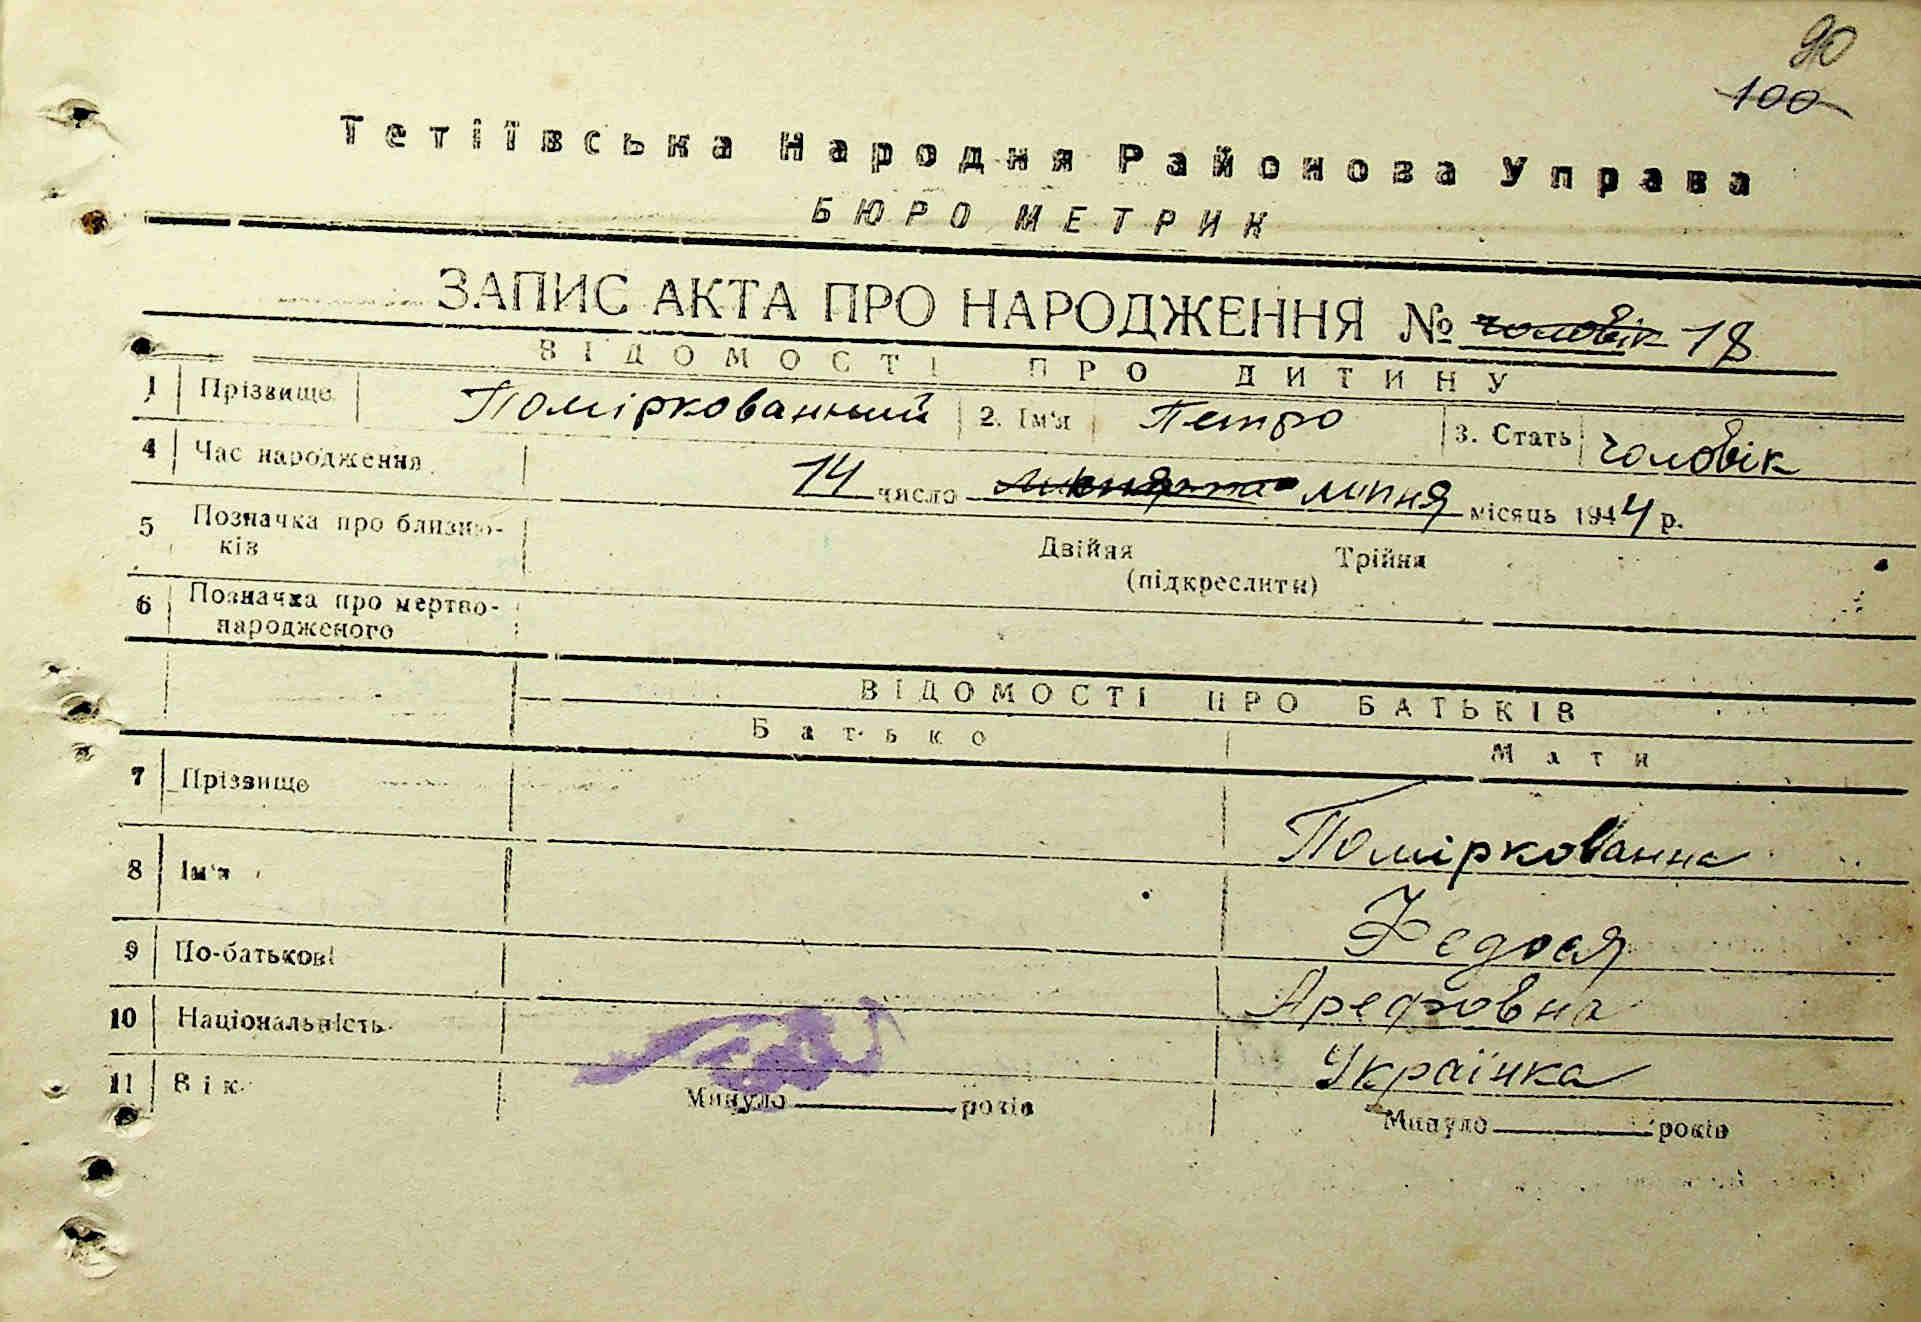 90
100
Тетіївська Народня Районова Управа
БЮРО МЕТРИК
ЗАПИС АКТА ПРО НАРОДЖЕННЯ № чоловік 18
ВІДОМОСТІ ПРО ДИТИНУ
1 Прізвище Поміркованний 2. Ім'я Петро 3. Стать чоловік
4 Час народження 14 число липня місяць 1944 р.
5 Позначка про близню-
ків Двійня Трійня
(підкреслити)
6 Позначка про мертво-
народженого
ВІДОМОСТІ ПРО БАТЬКІВ
Батько Мати
7 Прізвище Поміркованна
8 Ім'я Федося
9 По-батькові Арефовна
10 Національність Українка
11 Вік Минуло років Минуло років